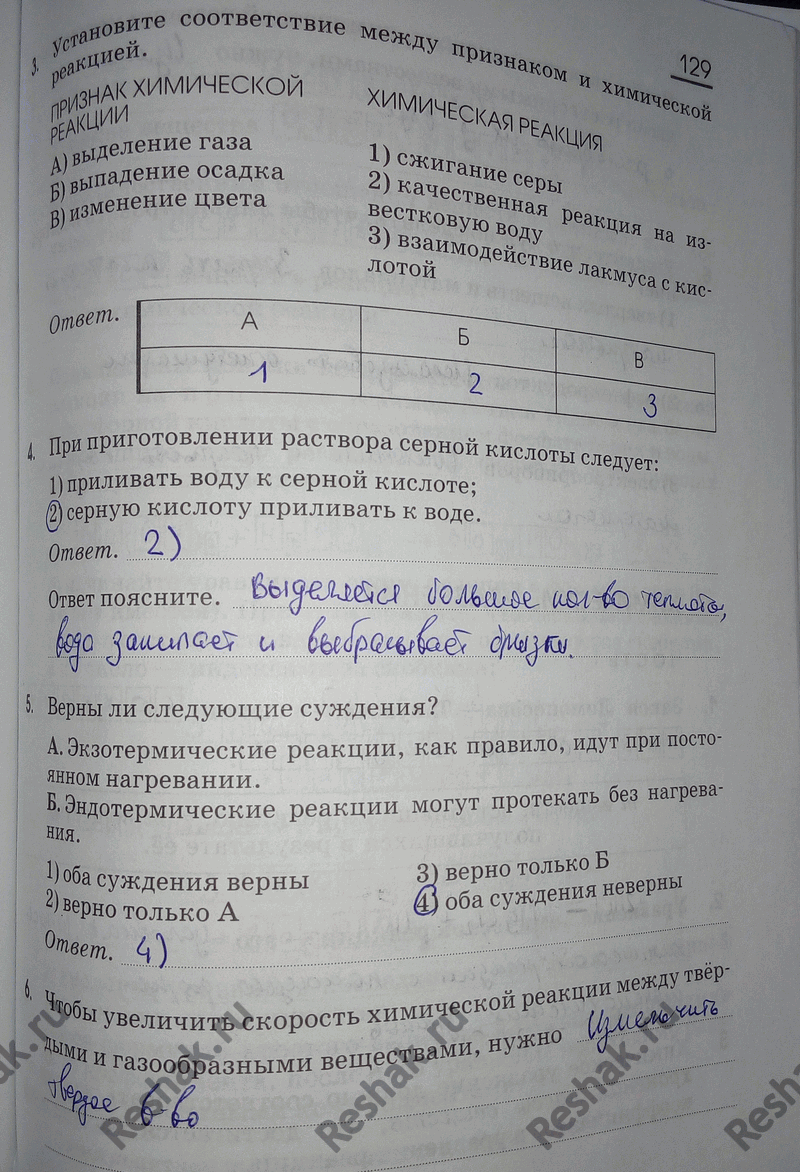 129
3. Установите соответствие между признаком и химической
реакцией.
ПРИЗНАК ХИМИЧЕСКОЙ
РЕАКЦИИ
А) выделение газа
Б) выпадение осадка
В) изменение цвета
ХИМИЧЕСКАЯ РЕАКЦИЯ
1) сжигание серы
2) качественная реакция на из-
вестковую воду
3) взаимодействие лакмуса с кис-
лотой
Ответ.
А Б В
1 2 3
4. При приготовлении раствора серной кислоты следует:
1) приливать воду к серной кислоте;
2) серную кислоту приливать к воде.
Ответ. 2)
Ответ поясните. Выделяется большое кол-во теплоты,
вода закипает и выбрасывает брызги.
5. Верны ли следующие суждения?
А. Экзотермические реакции, как правило, идут при посто-
янном нагревании.
Б. Эндотермические реакции могут протекать без нагрева-
ния.
1) оба суждения верны
2) верно только А
3) верно только Б
4) оба суждения неверны
Ответ. 4)
6. Чтобы увеличить скорость химической реакции между твёр-
дыми и газообразными веществами, нужно Измельчить
твердое в-во
Reshak.ru Reshak.ru Reshak.ru